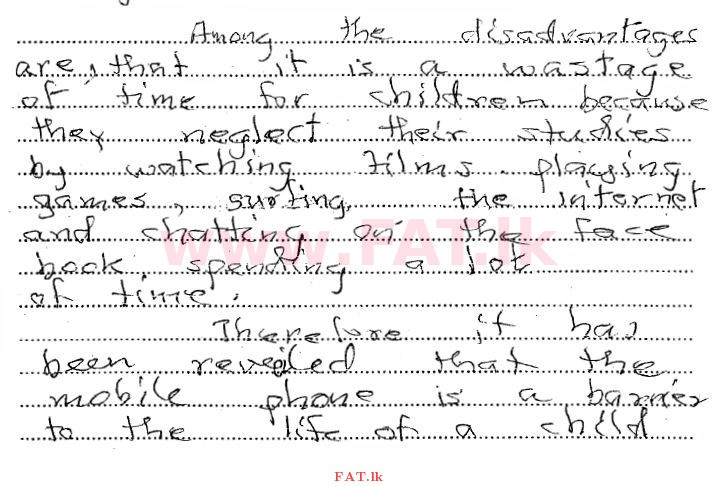 Among the disadvantages
are, that it is a wastage
of time for children because
they neglect their studies
by watching films playing
games, surfing the internet
and chatting on the face
book spending a lot
of time.
Therefore it has
been reveiled that the
mobile phone is a barrier
to the life of a child
www.FAT.lk
FAT.lk